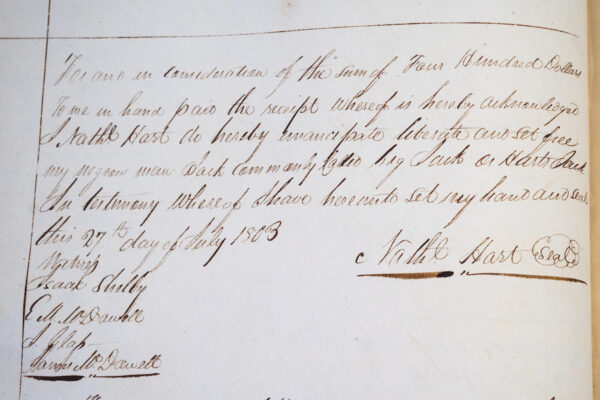 For and in consideration of the sum of Four Hundred Dollars
To me in hand paid the receipt whereof is hereby acknowledged
I Nathl Hart do hereby emancipate liberate and set free
my negrow man Jack commonly Called big Jack or Harts Jack
In testimony whereof I have hereunto set my hand and seal
this 27th day of July 1803
Nathl Hart Seal
Isaac Shelby
E M McDowell
J Glass
James McDowell